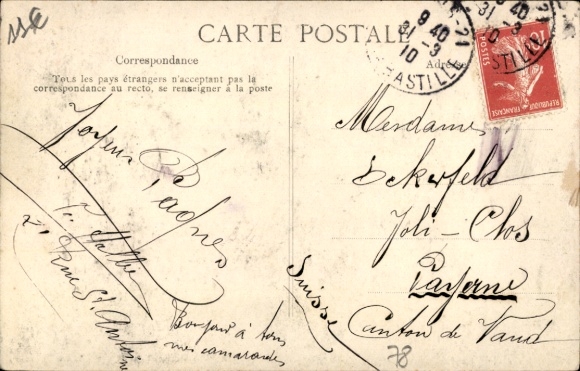 CARTE POSTALE
Correspondance
Tous les pays étrangers n'acceptant pas la
correspondance au recto, se renseigner à la poste
Adresse
9 40
31 -3
10
BASTILLE
9 40
31 -3
10
BASTILLE
POSTES
10
REPUBLIQUE FRANÇAISE
Joyeux
Pâques
Rue St Antoine
Bonjour à tous
mes camarades
Mesdames
Eckerfeld
Joli-Clos
Payerne
Canton de Vaud
Suisse
78